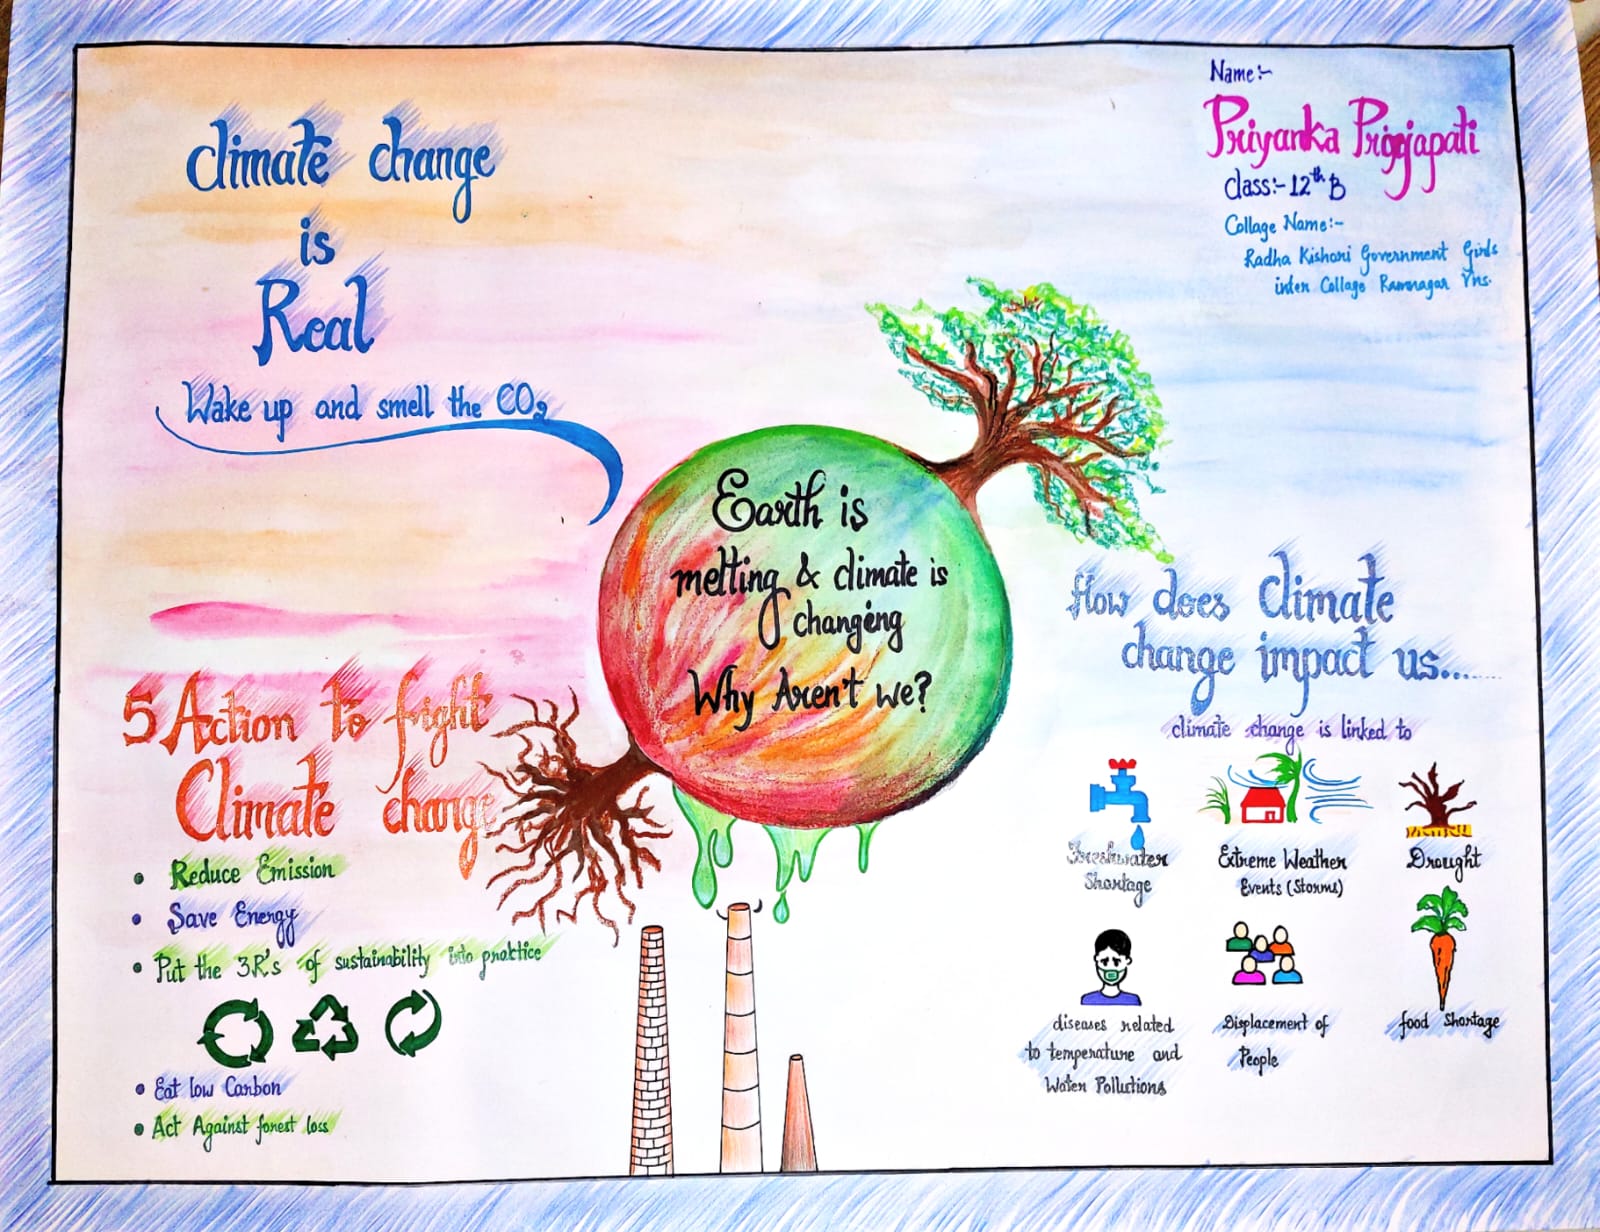 Climate change
is
Real
Wake up and smell the CO2
Name:-
Priyanka Prjapati
Class:- 12th B
Collage Name:-
Radha Kishori Government Girls
inter Collage Ramnagar Vns.
Earth is
melting & climate is
changing
Why Aren't we?
5 Action to fright
Climate change
• Reduce Emission
• Save Energy
• Put the 3R's of sustainability into practice
• Eat low Carbon
• Act Against forest loss
How does climate
change impact us......
climate change is linked to
Freshwater
Shortage
Extreme Weather
Events (Storms)
Drought
diseases related
to temperature and
Water Pollustions
Displacement of
People
food Shortage